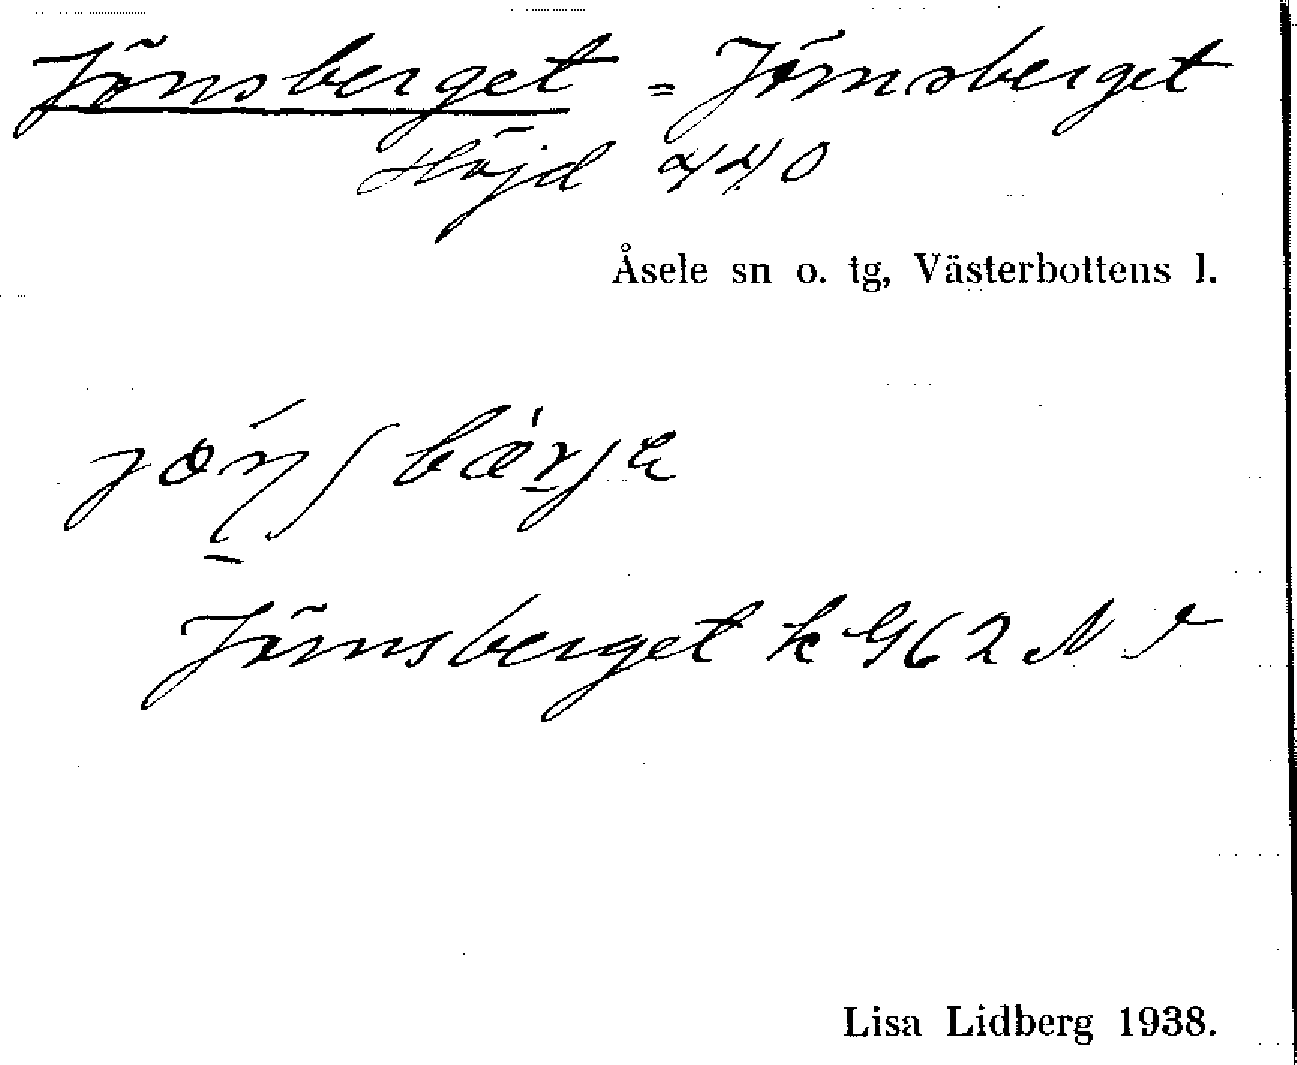 Jönsberget = Jönsberget
Höjd 440
Åsele sn o. tg, Västerbottens l.
Jönsberget k G62 NV
Lisa Lidberg 1938.